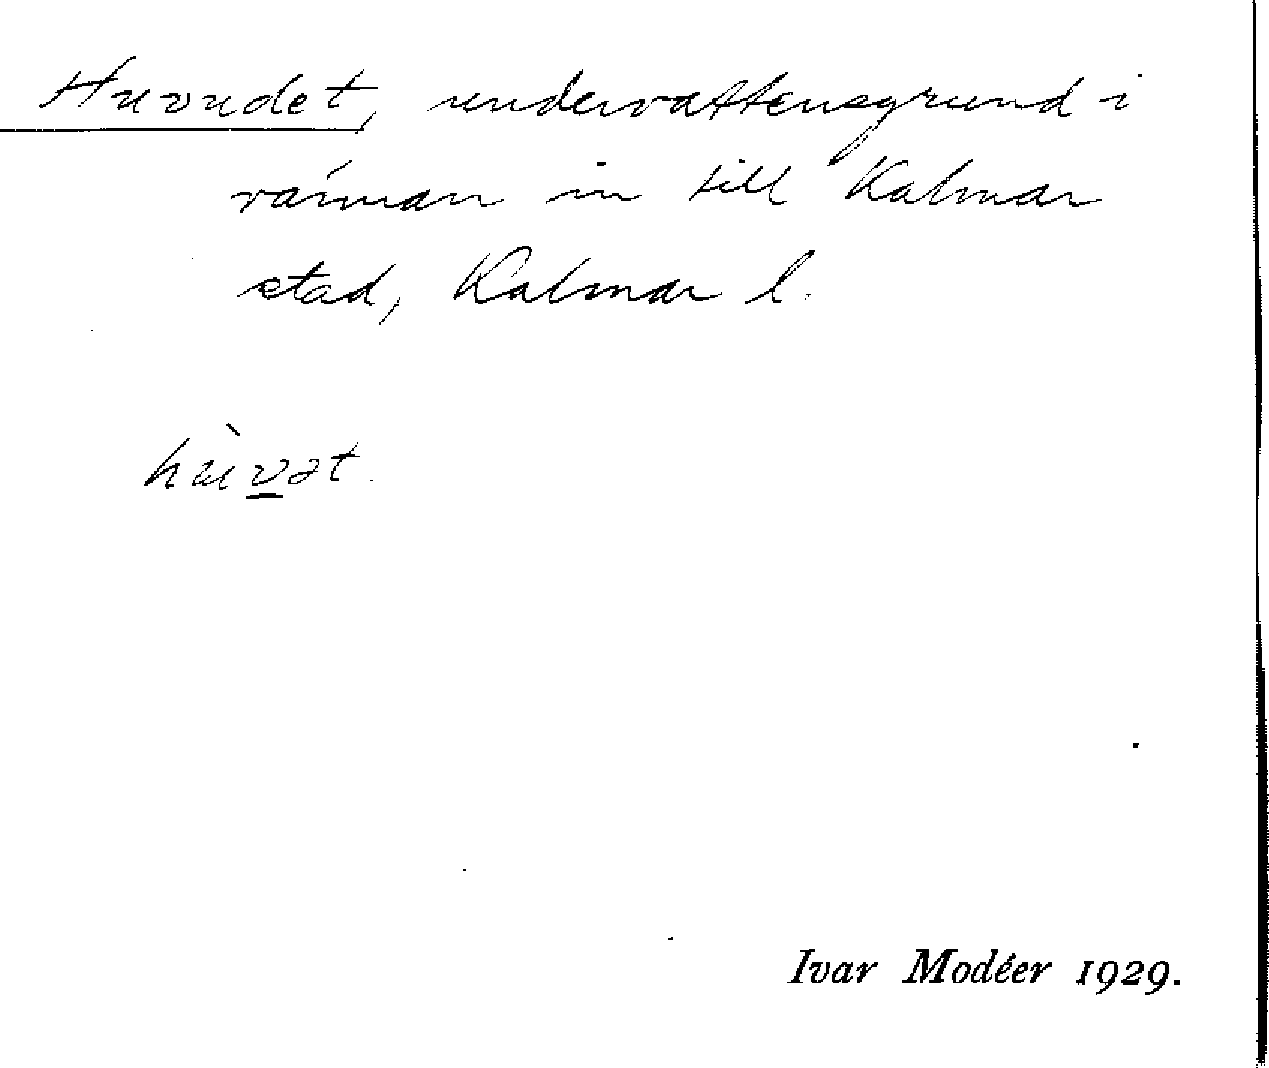 Huvudet, undervattensgrund i
rännan in till Kalmar
stad, Kalmar l.
hùvət.
Ivar Modéer 1929.